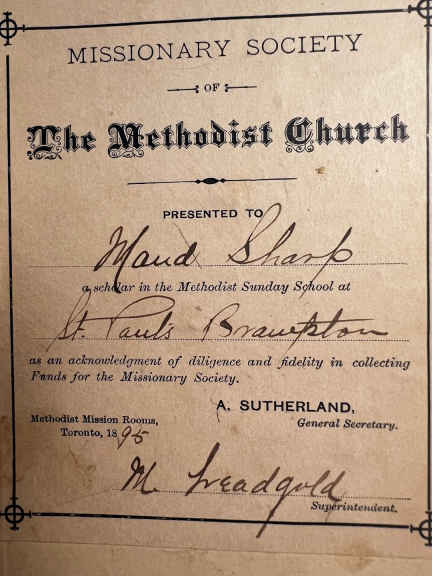 MISSIONARY SOCIETY
OF
The Methodist Church
PRESENTED TO
Maud Sharp
a scholar in the Methodist Sunday School at
St. Pauls Brampton
as an acknowledgment of diligence and fidelity in collecting
Funds for the Missionary Society.
A. SUTHERLAND,
General Secretary.
Methodist Mission Rooms,
Toronto, 1895
M. Treadgold
Superintendent.